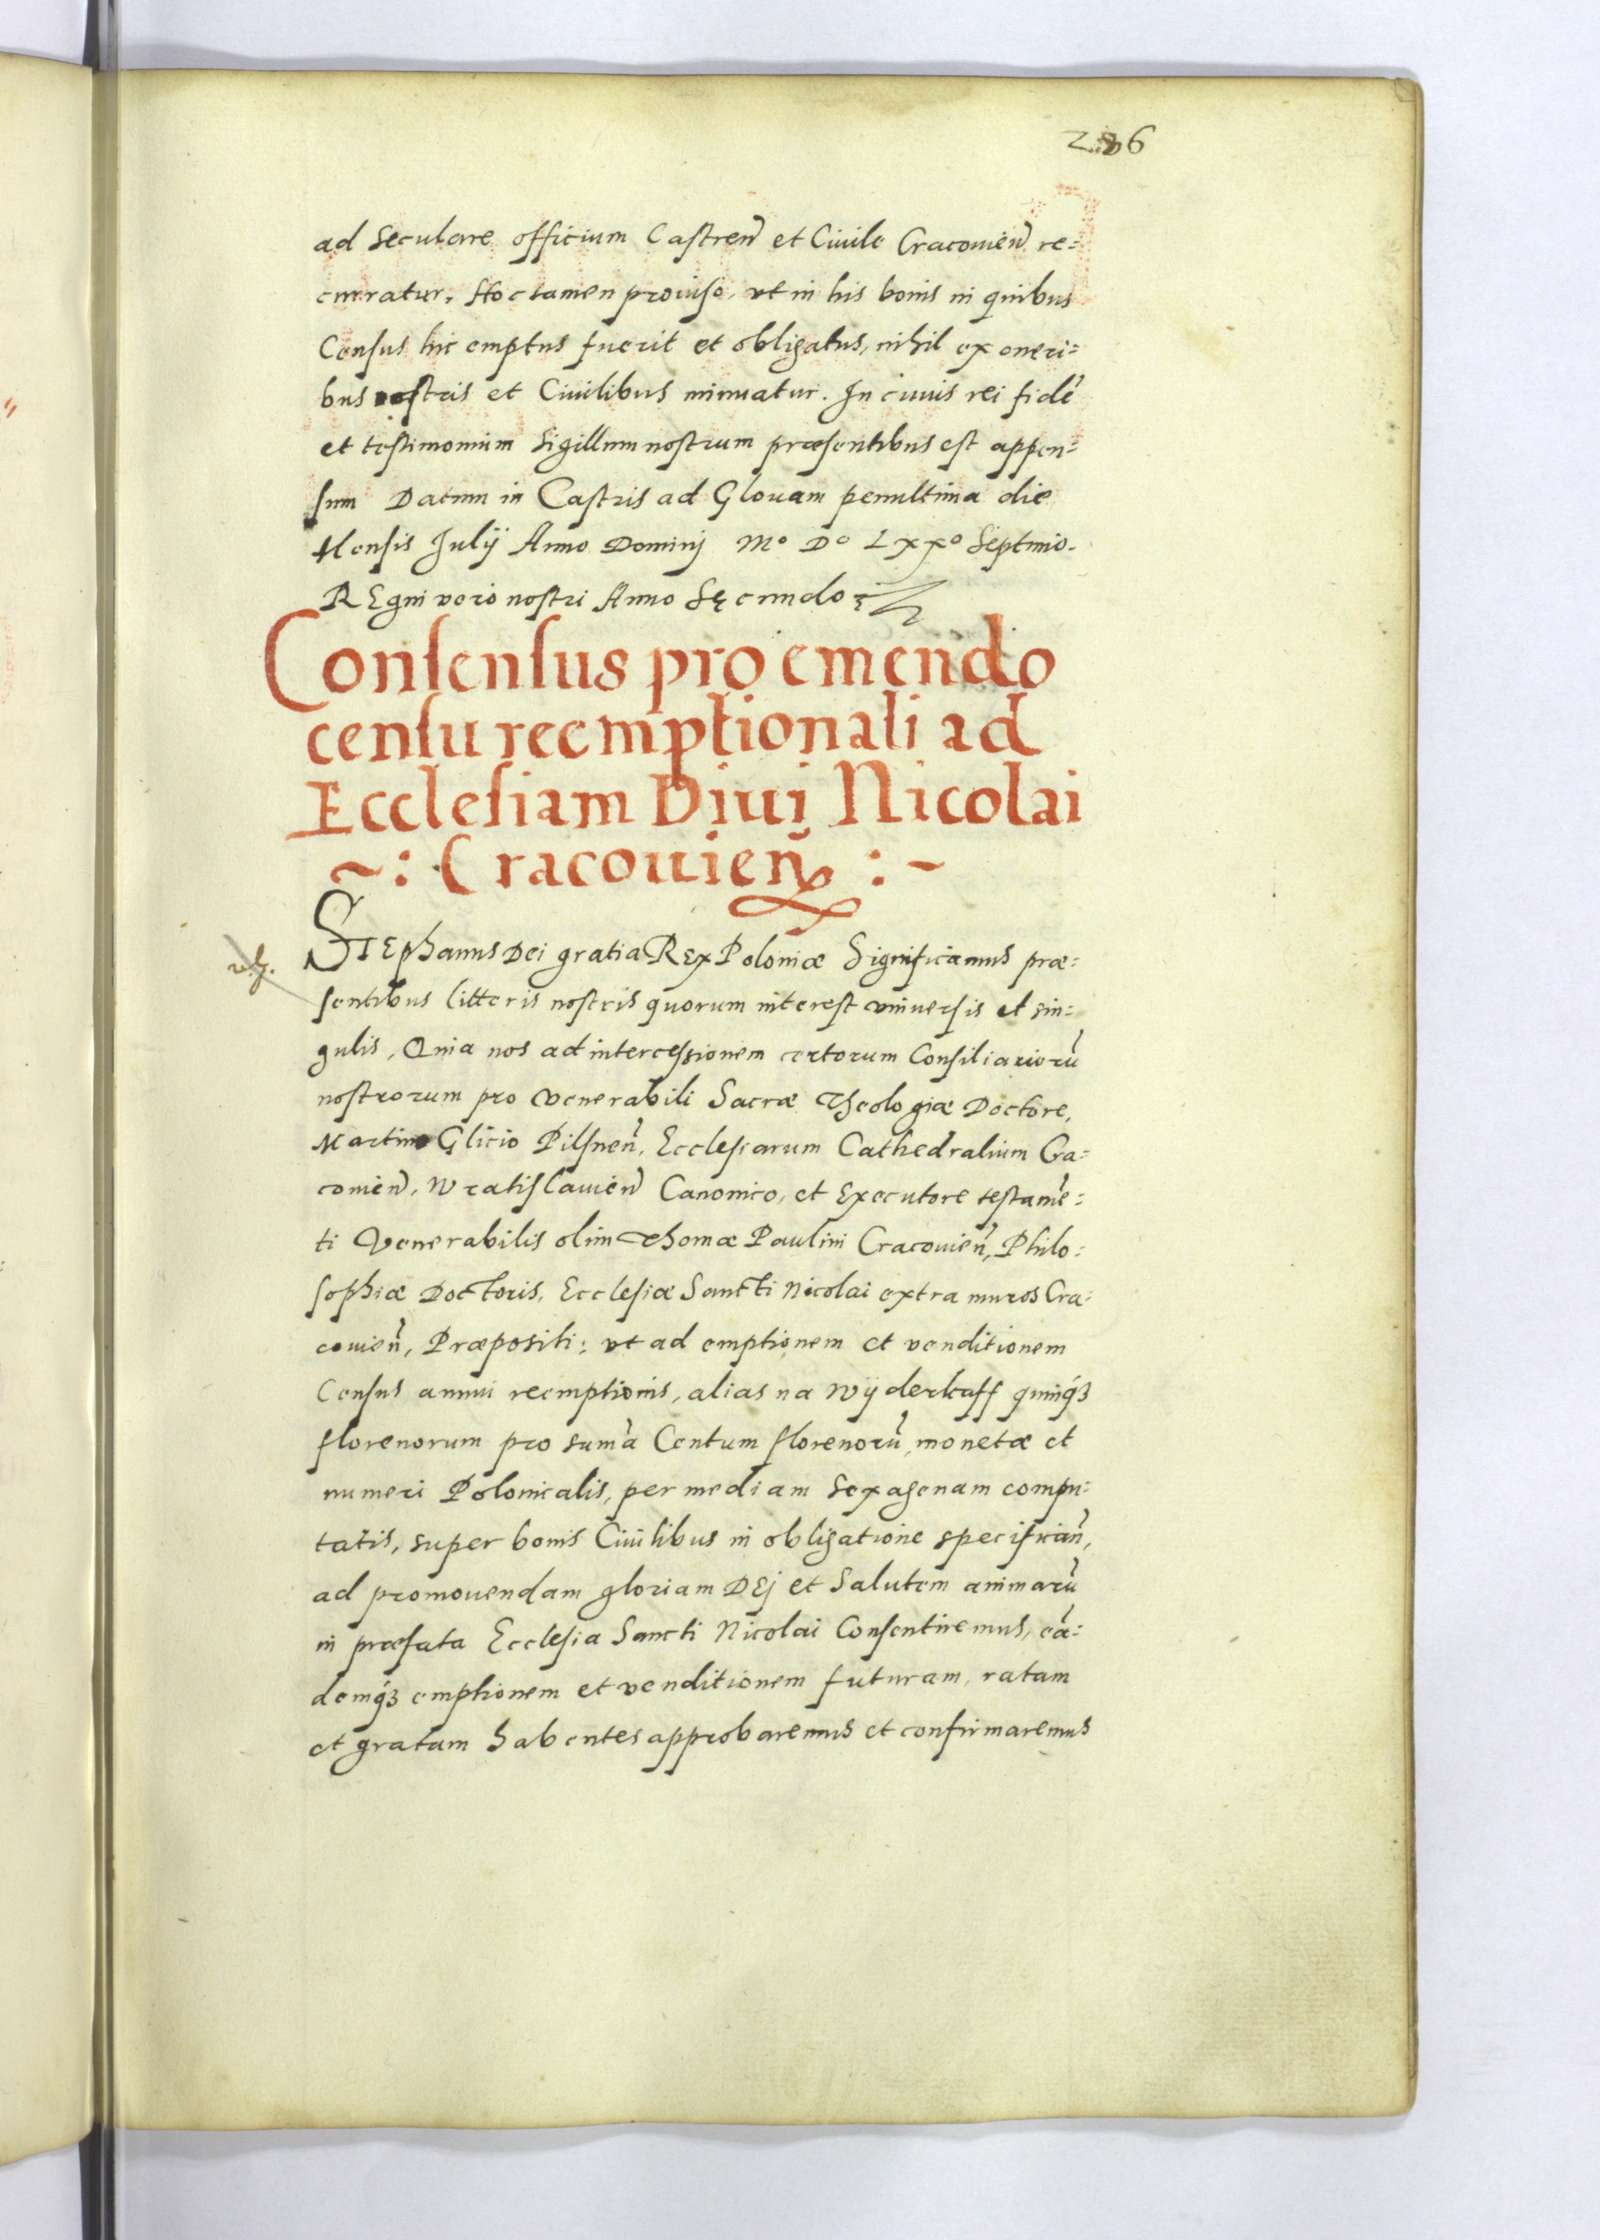 286
ad Seculare officium Castren̄ et Ciuile Cracouien̄ re:
curratur. Hoc tamen prouiso, vt in his bonis in quibus
Census hic emptus fuerit et obligatus, nihil ex oneri:
bus nostris et Ciuilibus minuatur. In cuius rei fidē
et testimonium Sigillum nostrum præsentibus est appen:
sum Datum in Castris ad Glouam penultima die
Mensis Julÿ Anno Dominj Mº Dº LXXº Septimo.
REgni vero nostri Anno Sęcundo
Consensus pro emendo
censu reemptionali ad
Ecclesiam Diui Nicolai
~: Cracouien̄ :~
STEphanus Dei gratia REx Poloniæ Significamus præ:
sentibus litteris nostris quorum interest vniuersis et sin:
gulis, Quia nos ad intercessionem certorum Consiliariorū
nostrorum pro Venerabili Sacræ Theologiæ Doctore,
Martino Glicio Pilsnen̄, Ecclesiarum Cathedralium Cra:
couien̄, Wratislauien̄ Canonico, et Executore testamē:
ti Venerabilis olim Thomæ Paulini Cracouien̄, Philo:
sophiæ Doctoris, Ecclesiæ Sancti Nicolai extra muros Cra:
couien̄, Præpositi: vt ad emptionem et venditionem
Census annui reemptionis, alias na Wÿderkaff quinqȝ
florenorum pro sum̄a Centum florenorū, monetæ et
numeri Polonicalis, per mediam Sexagenam compu:
tatis, super bonis Ciuilibus in obligatione specifican̄,
ad promouendam gloriam DEj et Salutem animarū
in præfata Ecclesia Sancti Nicolai Consentiremus, eā:
demqȝ emptionem et venditionem futuram, ratam
et gratam habentes approbaremus et confirmaremus